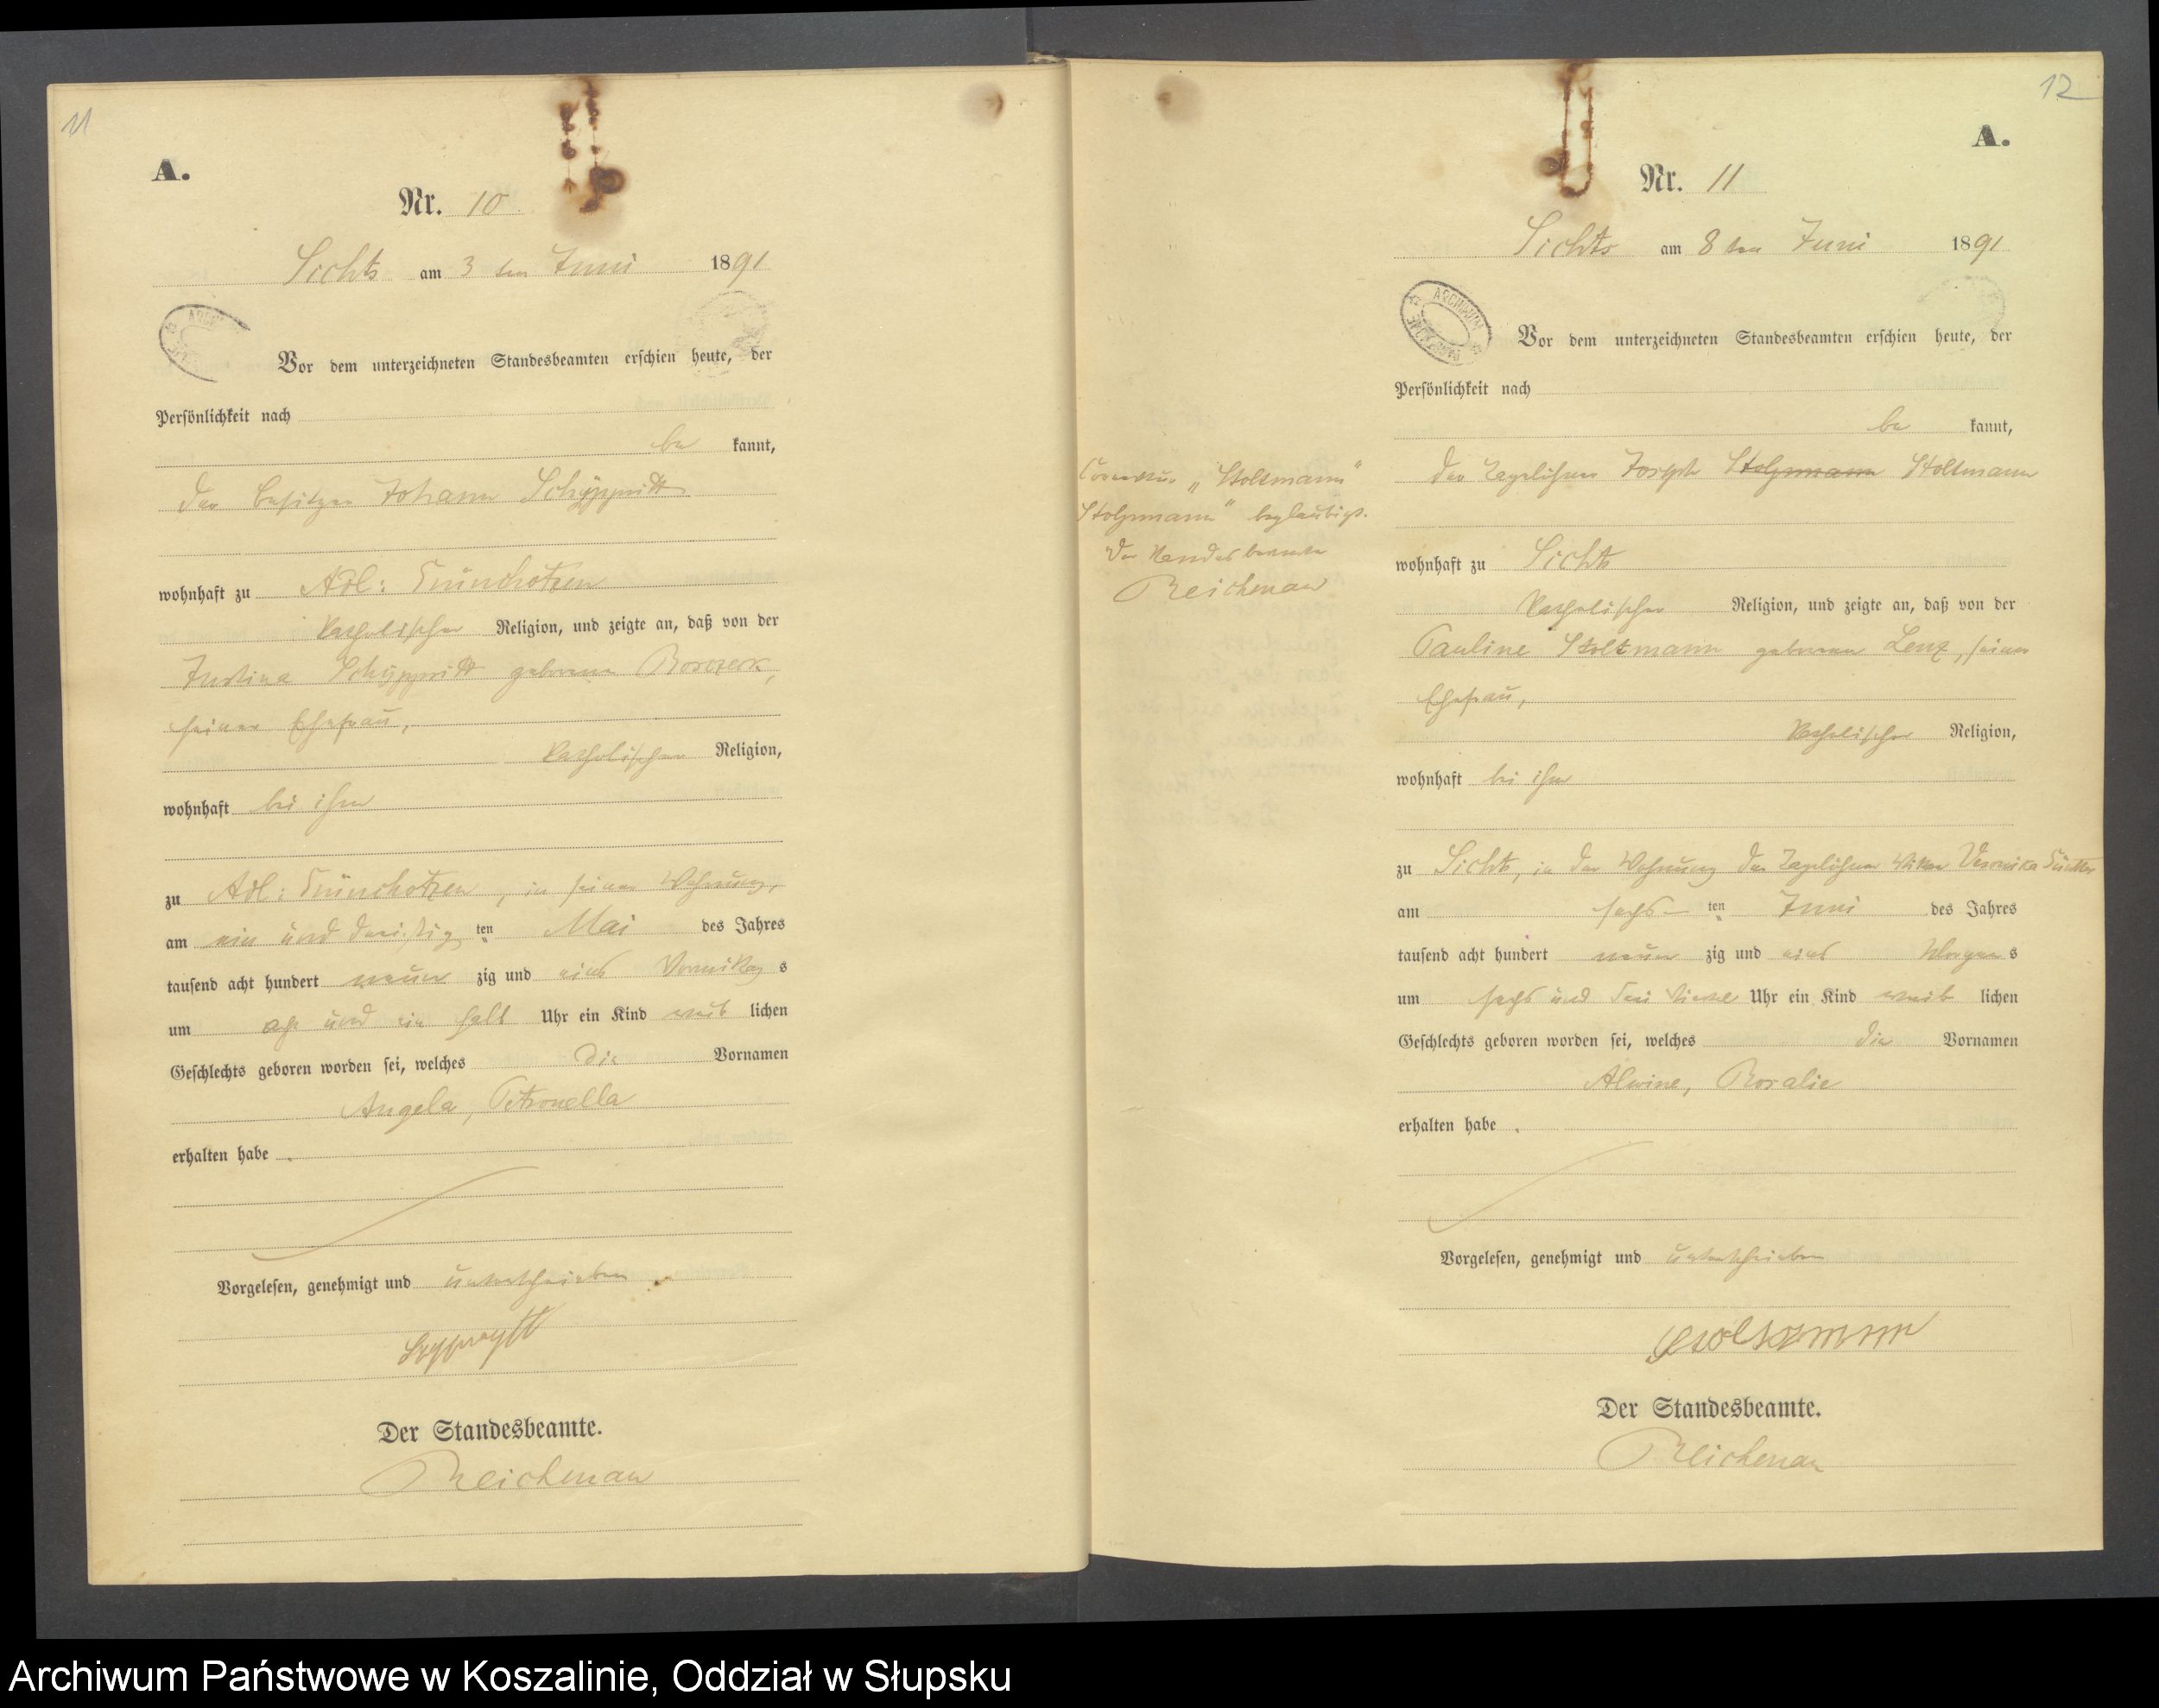 11
A.
Nr. 10
Sichts am 3 ten Juni 1891
Vor dem unterzeichneten Standesbeamten erschien heute, der
Persönlichkeit nach
be kannt,
der Besitzer Johann
wohnhaft zu Adl:
katholischer Religion, und zeigte an, daß von der
Justina geborene
seiner Ehefrau,
katholischer Religion,
wohnhaft bei ihm
zu Adl: , in seiner Wohnung,
am ein und dreißig ten Mai des Jahres
tausend acht hundert neun zig und eins Vormittag s
um acht und ein halb Uhr ein Kind weib lichen
Geschlechts geboren worden sei, welches die Vornamen
Angela, Petronella
erhalten habe .
Vorgelesen, genehmigt und unterschrieben
Der Standesbeamte.
Reichenau
12
A.
Nr. 11
Sichts am 8 ten Juni 1891
ARCHIWUM
Vor dem unterzeichneten Standesbeamten erschien heute, der
Persönlichkeit nach
be kannt,
der Tagelöhner Joseph Stolzmann Stoltmann
wohnhaft zu Sichts
katholischer Religion, und zeigte an, daß von der
Pauline Stoltmann geborenen Lenz, seiner
Ehefrau,
katholischer Religion,
wohnhaft bei ihm
zu Sichts, in der Wohnung der Tagelöhner Veronika
am sechs ten Juni des Jahres
tausend acht hundert neun zig und eins Morgen s
um sechs und drei viertel Uhr ein Kind weib lichen
Geschlechts geboren worden sei, welches die Vornamen
Alwine, Rosalie
erhalten habe .
Vorgelesen, genehmigt und unterschrieben
Der Standesbeamte.
Reichenau
"Stoltmann"
Stolzmann" beglaubigt.
Der Standesbeamte
Reichenau
Archiwum Państwowe w Koszalinie, Oddział w Słupsku